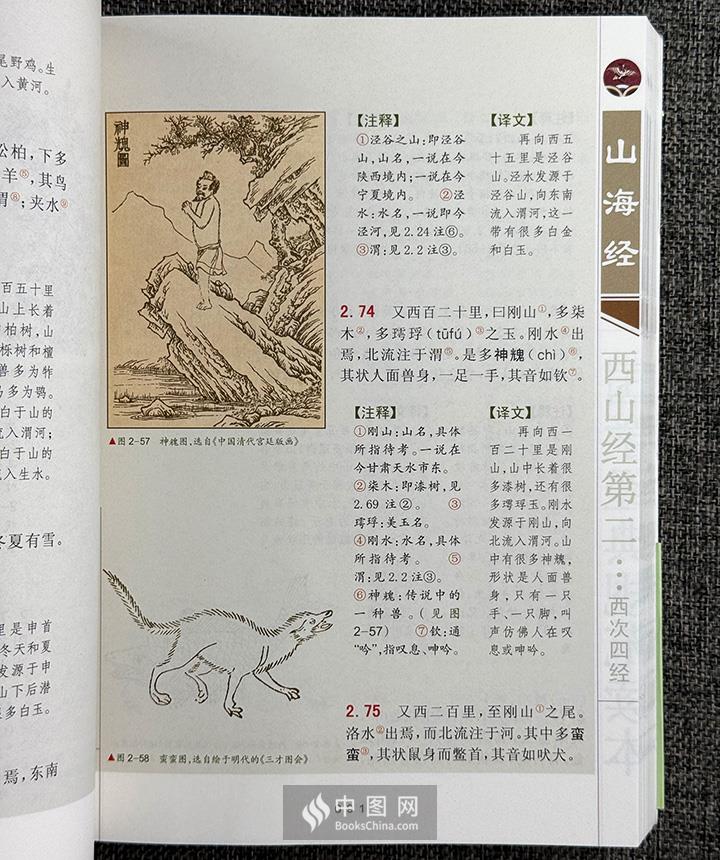 尾野鸡。生
入黄河。
公柏，下多
羊⑤，其鸟
渭⑧；夹水⑨
百五十里
山上长着
柏树，山
栎树和檀
兽多为牦
鸟多为鹗。
白于山的
流入渭河；
白于山的
入生水。
冬夏有雪。
里是申首
冬天和夏
发源于申
山下后潜
多白玉。
焉，东南
神𩳁圖
▲图2-57 神𩳁图，选自《中国清代宫廷版画》
▲图2-58 蛮蛮图，选自绘于明代的《三才图会》
【注释】
①泾谷之山：即泾谷
山，山名，一说在今
陕西境内；一说在今
宁夏境内。 ②泾
水：水名，一说即今
泾河，见2.24注⑥。
③渭：见2.2注③。
【译文】
再向西五
十五里是泾谷
山。泾水发源于
泾谷山，向东南
流入渭河，这一
带有很多白金
和白玉。
2.74 又西百二十里，曰刚山①，多柒
木②，多㻬琈（tūfú）③之玉。刚水④出
焉，北流注于渭⑤。是多神𩳁（chì）⑥，
其状人面兽身，一足一手，其音如钦⑦。
【注释】
①刚山：山名，具体
所指待考。一说在
今甘肃天水市东。
②柒木：即漆树，见
2.69注②。 ③
㻬琈：美玉名。
④刚水：水名，具体
所指待考。 ⑤
渭：见2.2注③。
⑥神𩳁：传说中的
一种兽。（见图
2-57） ⑦钦：通
“吟”，指叹息、呻吟。
【译文】
再向西一
百二十里是刚
山，山中长着很
多漆树，还有很
多㻬琈玉。刚水
发源于刚山，向
北流入渭河。山
中有很多神𩳁，
形状是人面兽
身，只有一只
手、一只脚，叫
声仿佛人在叹
息或呻吟。
2.75 又西二百里，至刚山①之尾。
洛水②出焉，而北流注于河。其中多蛮
蛮③，其状鼠身而鳖首，其音如吠犬。
山海经
西山经第二…西次四经
中图网
BooksChina.com